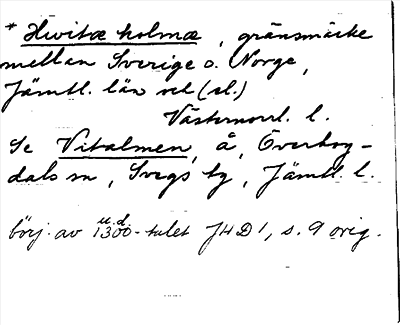 * Hwitæ holmæ, gränsmärke
mellan Sverige o. Norge,
Jämtl. län vet (sl.)
Västernorrl. l.
Se Vitalmen, å, Överhog-
dals sn, Svegs tg, Jämtl. l.
u.d.
börj. av 1300-talet JHD 1, s. 9 orig.